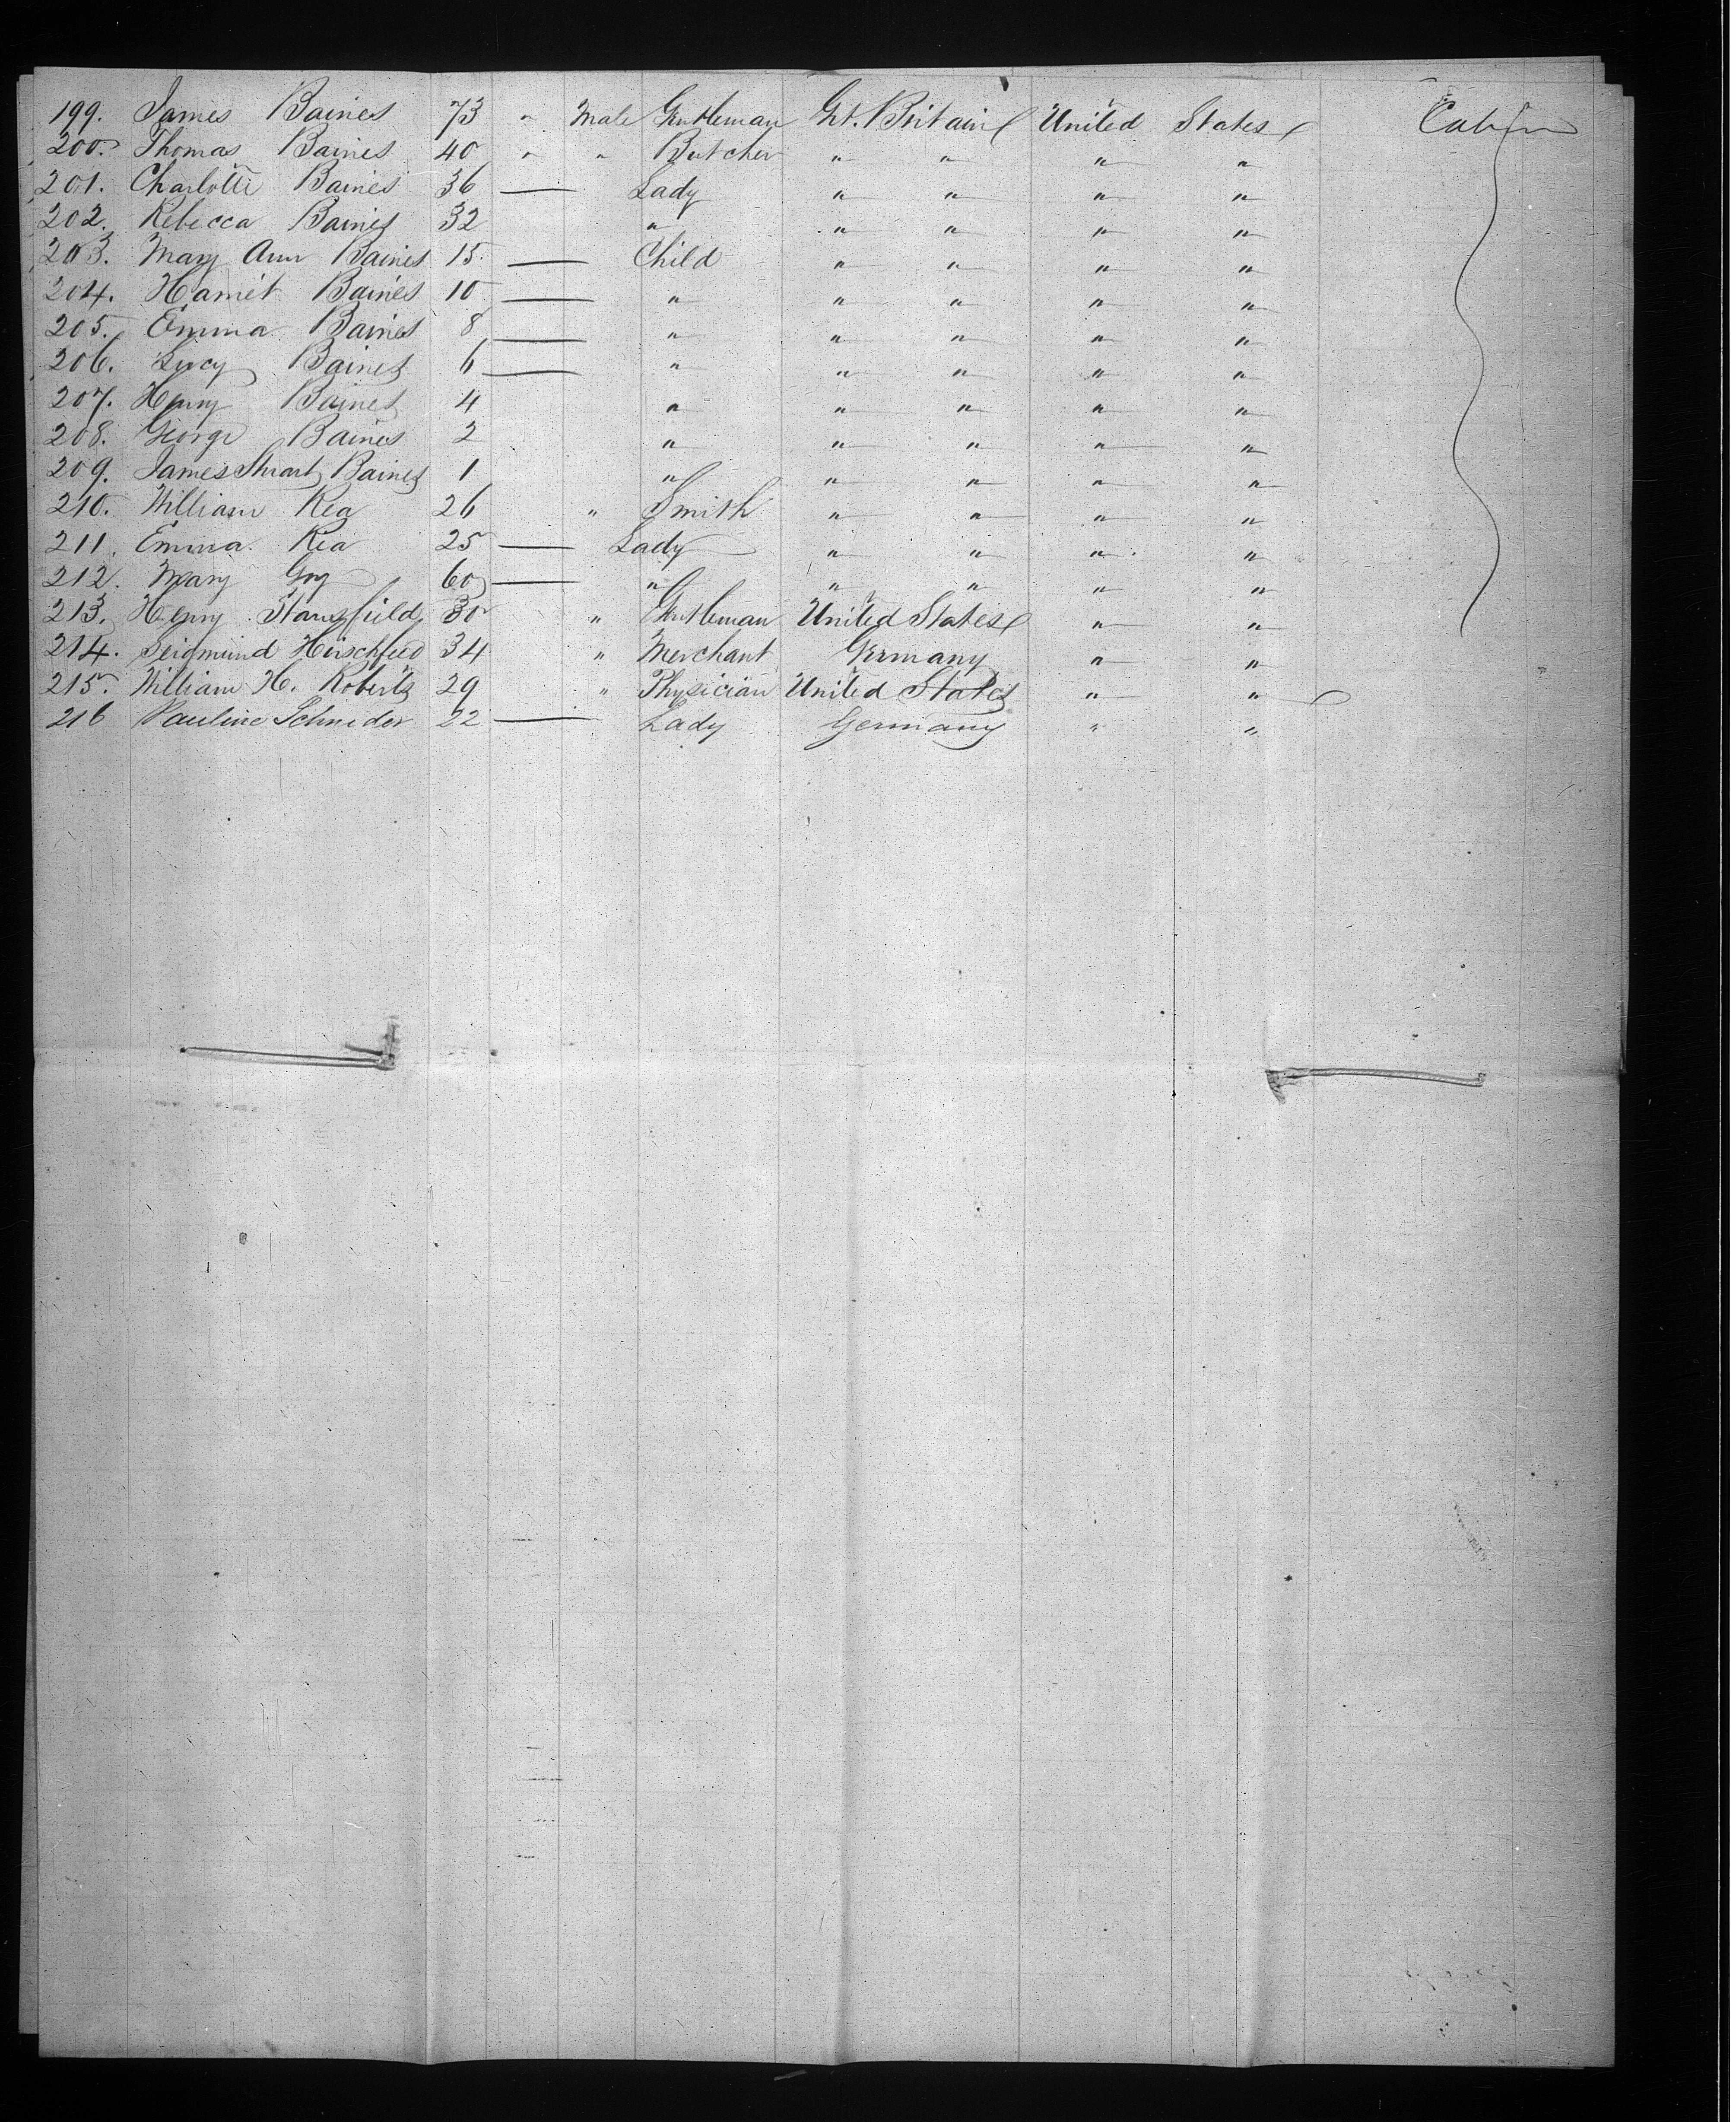 199. James Baines 73 " Male Gentleman Gt. Britain United States Cabin
200. Thomas Baines 40 " " Butcher " " " "
201. Charlotte Baines 36 — Lady " " " "
202. Rebecca Baines 32 " " " " "
203. Mary Ann Baines 15 — Child " " " "
204. Harriet Baines 10 — " " " " "
205. Emma Baines 8 — " " " " "
206. Lucy Baines 6 — " " " " "
207. Henry Baines 4 " " " " "
208. George Baines 2 " " " " "
209. James Stuart Baines 1 " " " " "
210. William Rea 26 " Smith " " " "
211. Emma Rea 25 — Lady " " " "
212. Mary 60 — " " " " "
213. Henry Stansfield 30 " Gentleman United States " "
214. Seigmund Hirschfeld 34 " Merchant Germany " "
215. William H. Roberts 29 " Physician United States " "
216 Pauline Schnider 22 — Lady Germany " "